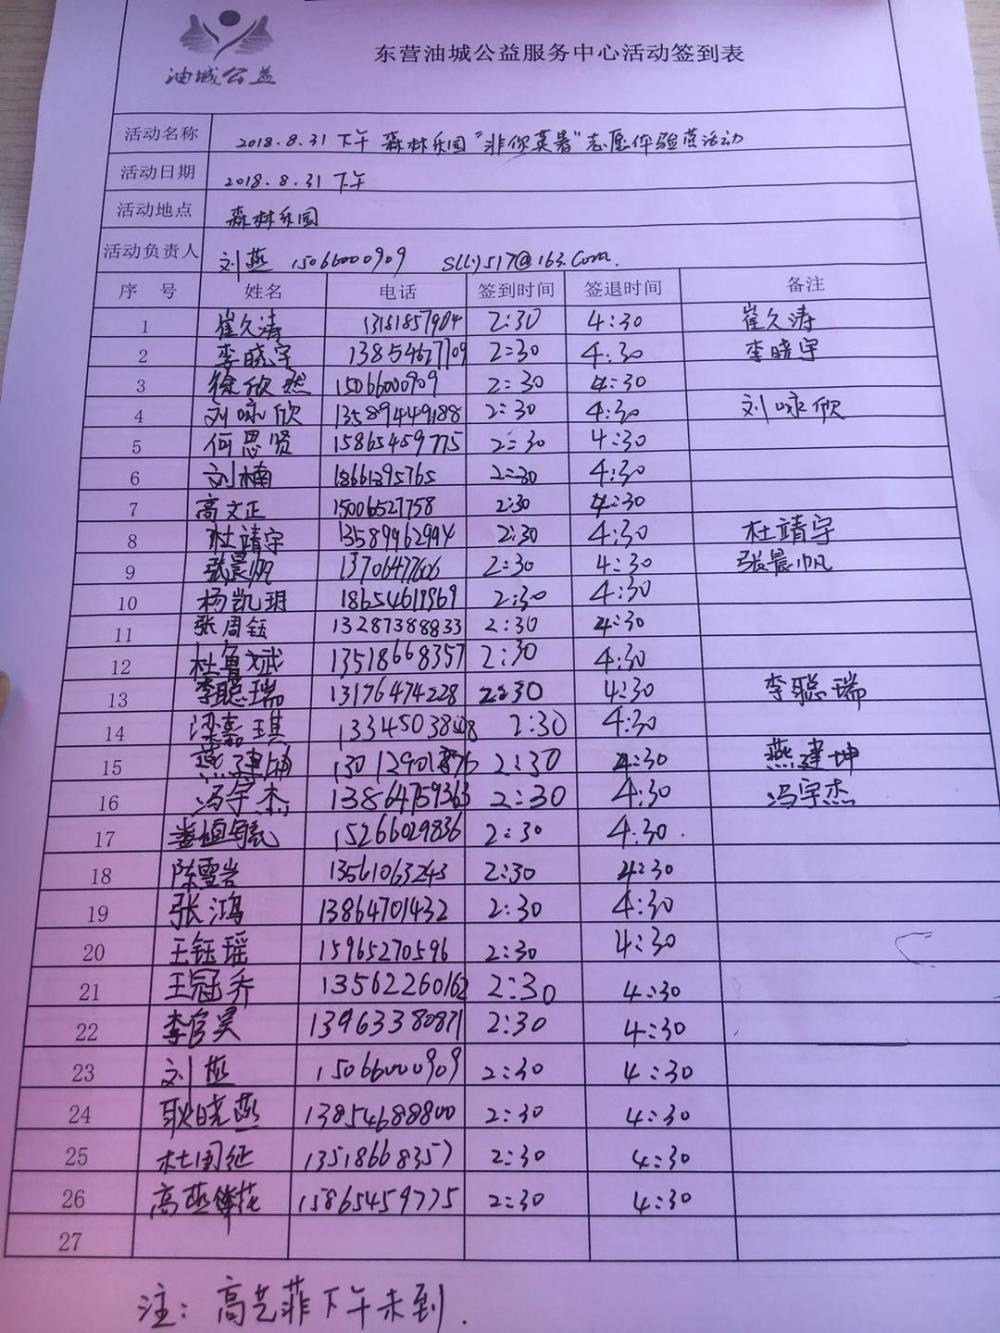 油城公益
东营油城公益服务中心活动签到表
活动名称 2018.8.31下午 森林乐园"非你莫属"志愿体验营活动
活动日期 2018.8.31下午
活动地点 森林乐园
活动负责人 刘燕 15066000909
序 号 姓名 电话 签到时间 签退时间 备注
1 崔久涛 13181857904 2:30 4:30 崔久涛
2 李晓宇 13854627709 2:30 4:30 李晓宇
3 徐欣然 15066000909 2:30 4:30
4 刘咏欣 13589449188 2:30 4:30 刘咏欣
5 何思贤 15865459775 2:30 4:30
6 刘楠 18661395765 2:30 4:30
7 高文正 15006527758 2:30 4:30
8 杜靖宇 13589962904 2:30 4:30 杜靖宇
9 张晨帆 2:30 4:30 张晨帆
10 杨凯玥 18654611969 2:30 4:30
11 张周钰 13287388833 2:30 4:30
12 杜鲁斌 13518668357 2:30 4:30
13 李聪瑞 13176474228 2:30 4:30 李聪瑞
14 梁嘉琪 2:30 4:30
15 燕建坤 2:30 4:30 燕建坤
16 冯宇杰 13864759363 2:30 4:30 冯宇杰
17 15266029836 2:30 4:30.
18 陈雪岩 13561063243 2:30 4:30
19 张鸿 13864701432 2:30 4:30
20 王钰瑶 15965270596 2:30 4:30
21 王冠乔 13562260162 2:30 4:30
22 李官昊 13963380871 2:30 4:30
23 刘燕 15066000909 2:30 4:30
24 耿晓燕 13854688800 2:30 4:30
25 杜国征 13518668357 2:30 4:30
26 15865459775 2:30 4:30
27
注：高艺菲下午未到.